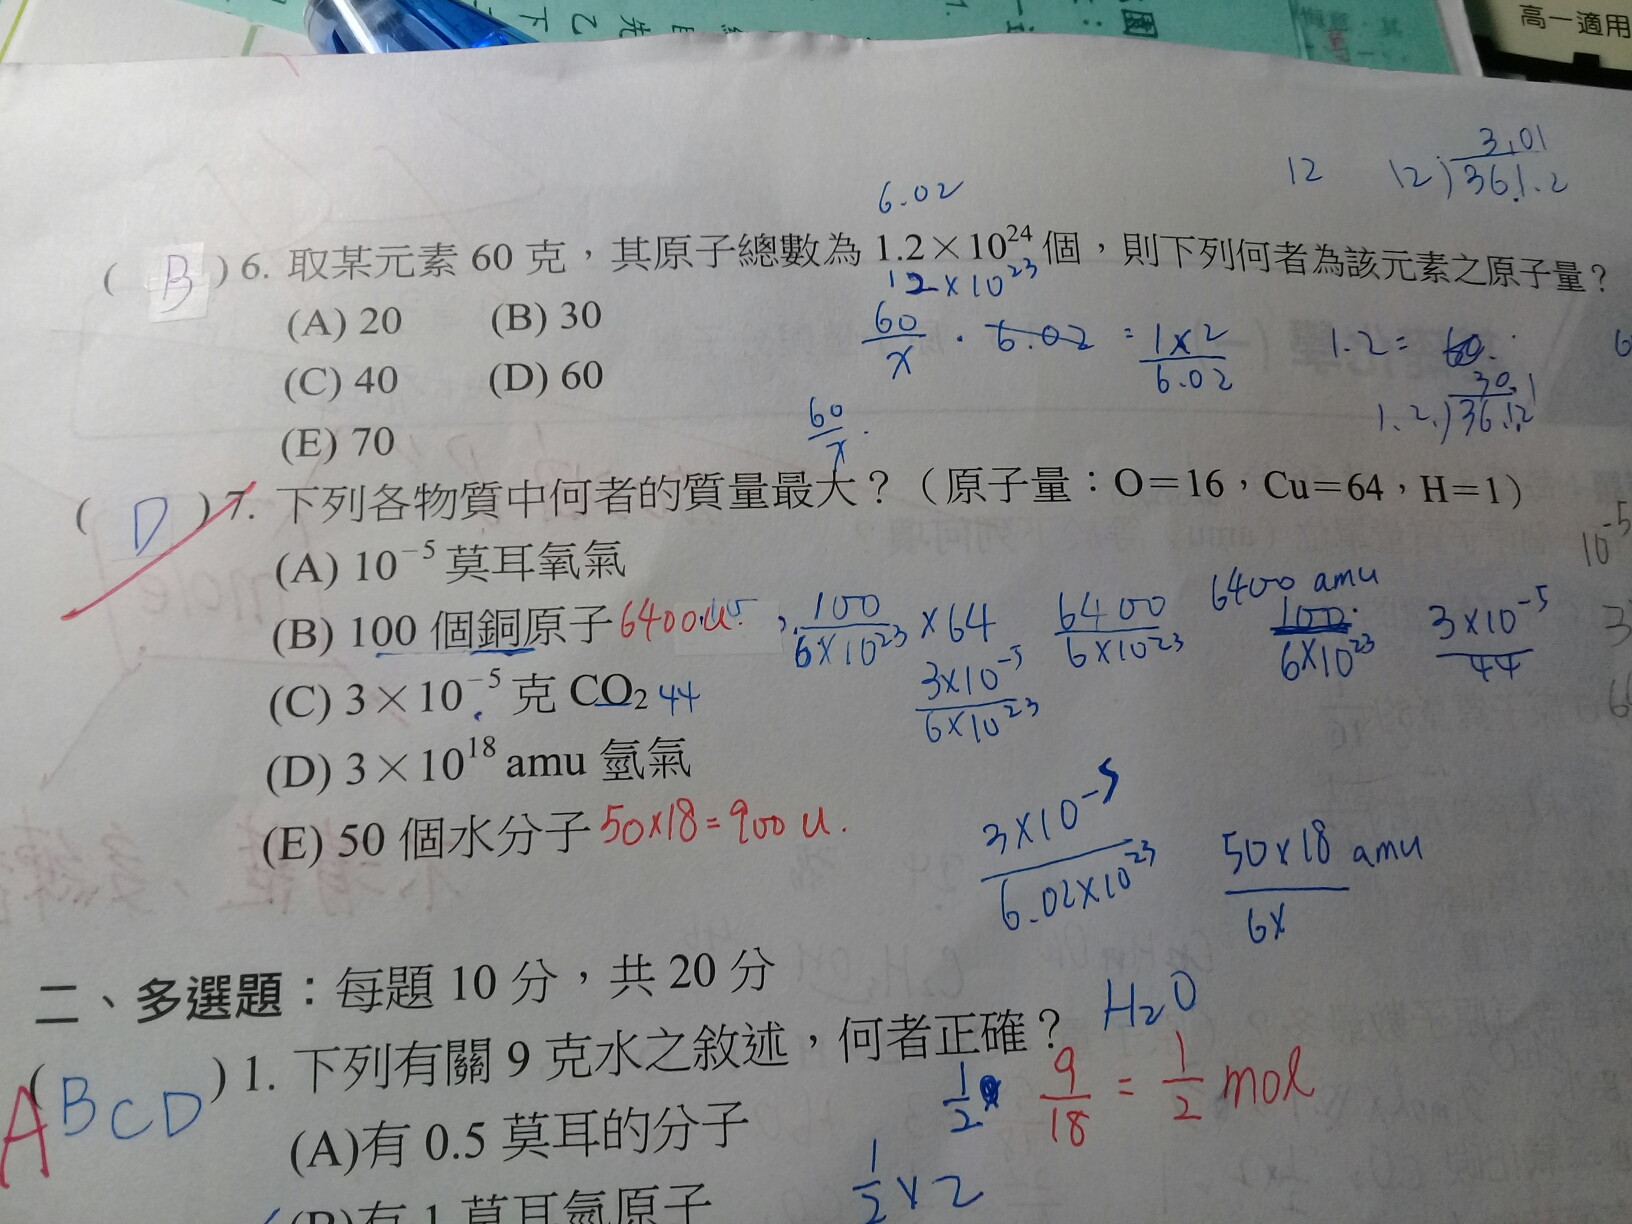 高一適用
12 12)36.1.2 3.01
6.02
( B ) 6. 取某元素 60 克，其原子總數為 1.2×10²⁴ 個，則下列何者為該元素之原子量？
12×10²³
(A) 20 (B) 30
60/x · 6.02 = 1×2/6.02 1.2= 60.
(C) 40 (D) 60
1.2.)36.12 30.1
60/x ·
(E) 70
( D ) 7. 下列各物質中何者的質量最大？（原子量：O＝16，Cu＝64，H＝1）
10⁻⁵
(A) 10⁻⁵ 莫耳氧氣
6400 amu
(B) 100 個銅原子 6400u 100/6×10²³ ×64 6400/6×10²³ 100/6×10²³ 3×10⁻⁵/44
(C) 3×10⁻⁵ 克 CO₂ 44 3×10⁻⁵/6×10²³
(D) 3×10¹⁸ amu 氫氣
(E) 50 個水分子 50×18=900 u.
3×10⁻⁵/6.02×10²³ 50×18 amu/6×
二、多選題：每題 10 分，共 20 分
H₂O
( ABCD ) 1. 下列有關 9 克水之敘述，何者正確？
1/2 9/18 = 1/2 mol
(A)有 0.5 莫耳的分子
1/2 × 2
(B)有 1 莫耳氫原子